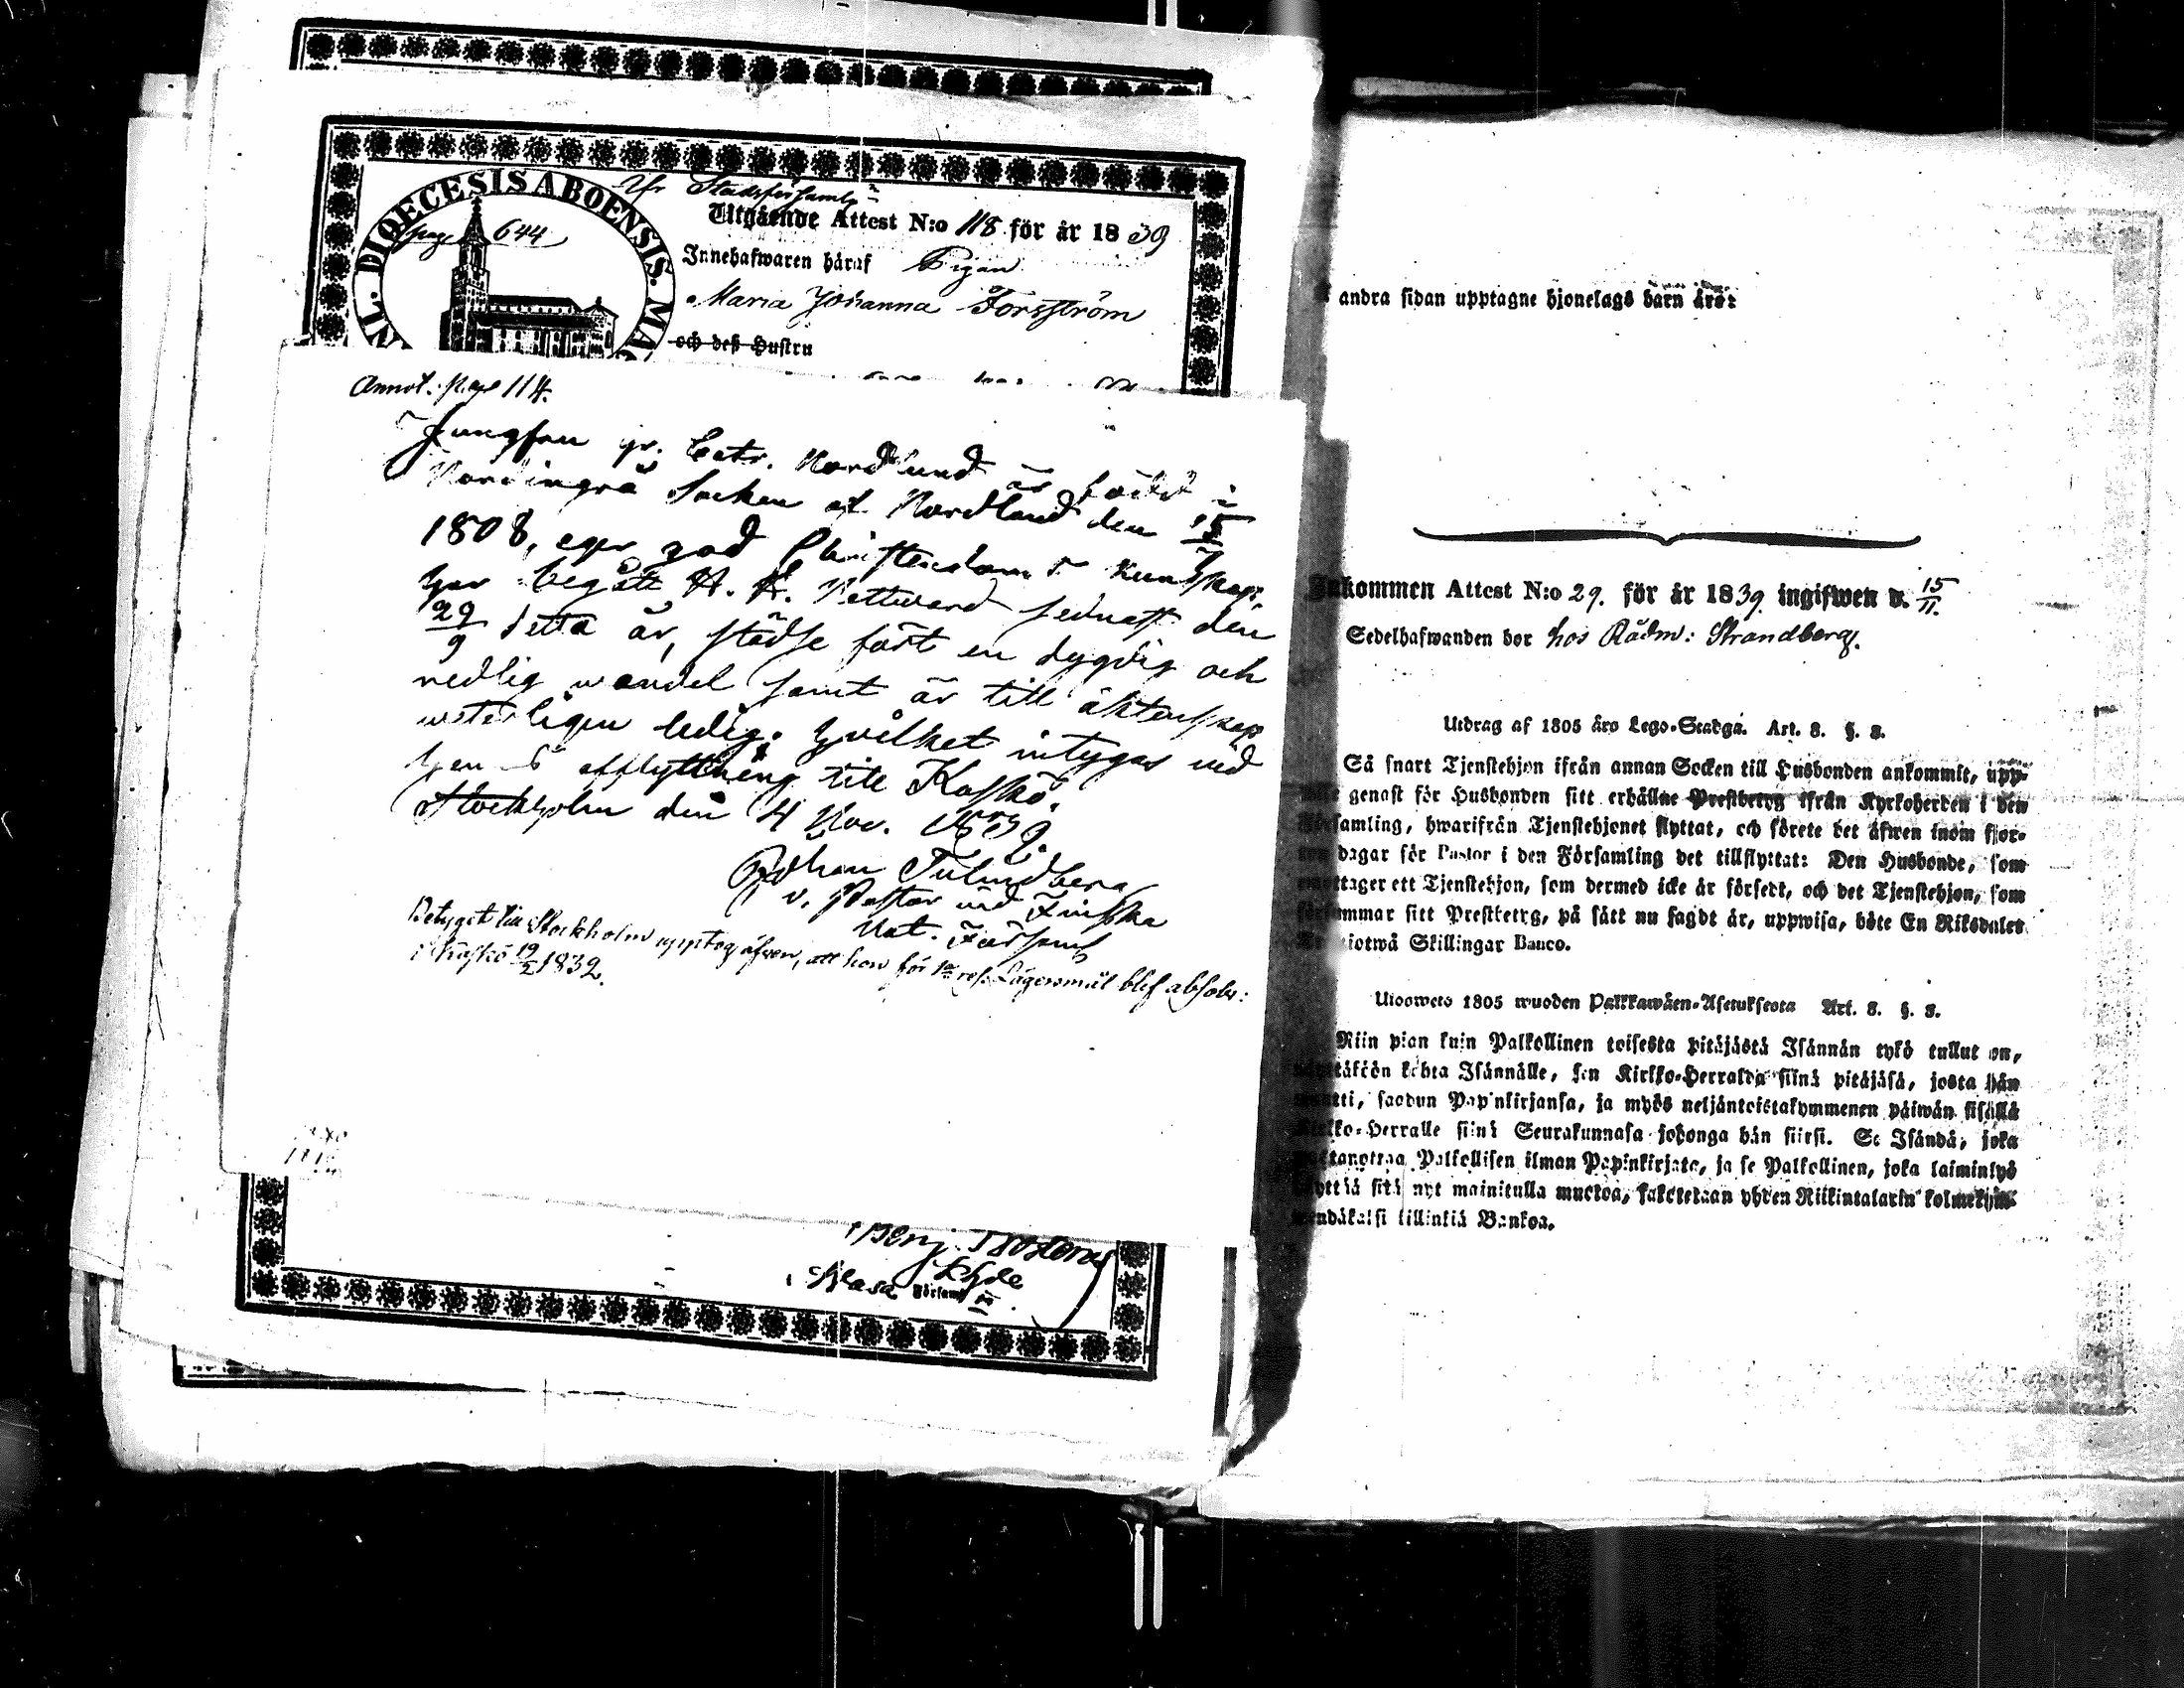 Ifr. Stadsförsaml:n
DIOECESIS ABOENSIS. MAG
NL.
pag 644
Utgående Attest N:o 118 för år 1839
Innehafwaren häraf Pigan
Maria Johanna Forsström
och deß Hustru
Annot. page 114.
Jungfrun gr. Catr. Nordlund är född i
Nordingrå Socken af Nordland den 15/7
1808, eger god Christendoms kunskap,
har begått H. H. Nattward sednast den
29/9 detta år, städse fört en dygdig och
redlig wandel samt är till äktenskap
weterligen ledig; Hwilket intygas wid
hennes afflyttning till Kaskö.
Stockholm den 4 Nov. 1839.
Johan Tulindberg
v. Pastor wid Finska
Nat. Församl
Betyget till Stockholm upptog äfwen, att hon för 1a res. Lägersmål blef absolv:
i Kaskö 19/2 1832.
Wasa Församl
andra sidan upptagne hjonelags barn äro:
Inkommen Attest N:o 29. för år 1839 ingifwen d. 15/11.
Sedelhafwanden bor hos Rådm: Strandberg.
Utdrag af 1805 års Lego-Stadga. Art. 8. §. 8.
Så snart Tjenstehjon ifrån annan Socken till Husbonden ankommit, upp-
genast för Husbonden sitt erhållne Prestbetyg ifrån Kyrkoherden i den
Församling, hwarifrån Tjenstehjonet flyttat, och förete det äfwen inom fjor-
ton dagar för Pastor i den Församling det tillflyttat: Den Husbonde, som
emottager ett Tjenstehjon, som dermed icke är försedt, och det Tjenstehjon, som
försummar sitt Prestbetyg, på sätt nu sagdt är, uppwisa, böte En Riksdaler
Trettiotwå Skillingar Banco.
Uloswets 1805 wuoden Palkkawäen-Asetuksesta Art. 8. §. 8.
Niin pian kuin Palkollinen toisesta pitäjästä Isännän tykö tullut on,
näyttäköön kohta Isännälle, sen Kirkko-Herralda siinä pitäjäsä, josta hän
muutti, saadun Papinkirjansa, ja myös neljäntoistakymmenen päiwän sisällä
Kirkko-Herralle siinä Seurakunnasa johonga hän siirsi. Se Isändä, joka
wastanottaa Palkollisen ilman Papinkirjata, ja se Palkollinen, joka laiminlyö
näyttää sitä nyt mainitulla muotoa, sakotetaan yhden Riikintalarin kolmekym-
mendäkaksi killinkiä Bankoa.